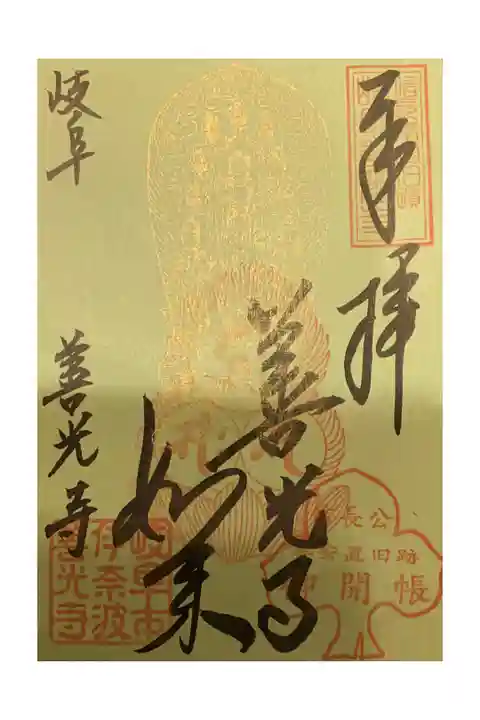 奉拝
善光寺
如来
岐阜 善光寺
長公
安置旧跡
御開帳
岐阜市
伊奈波
善光寺